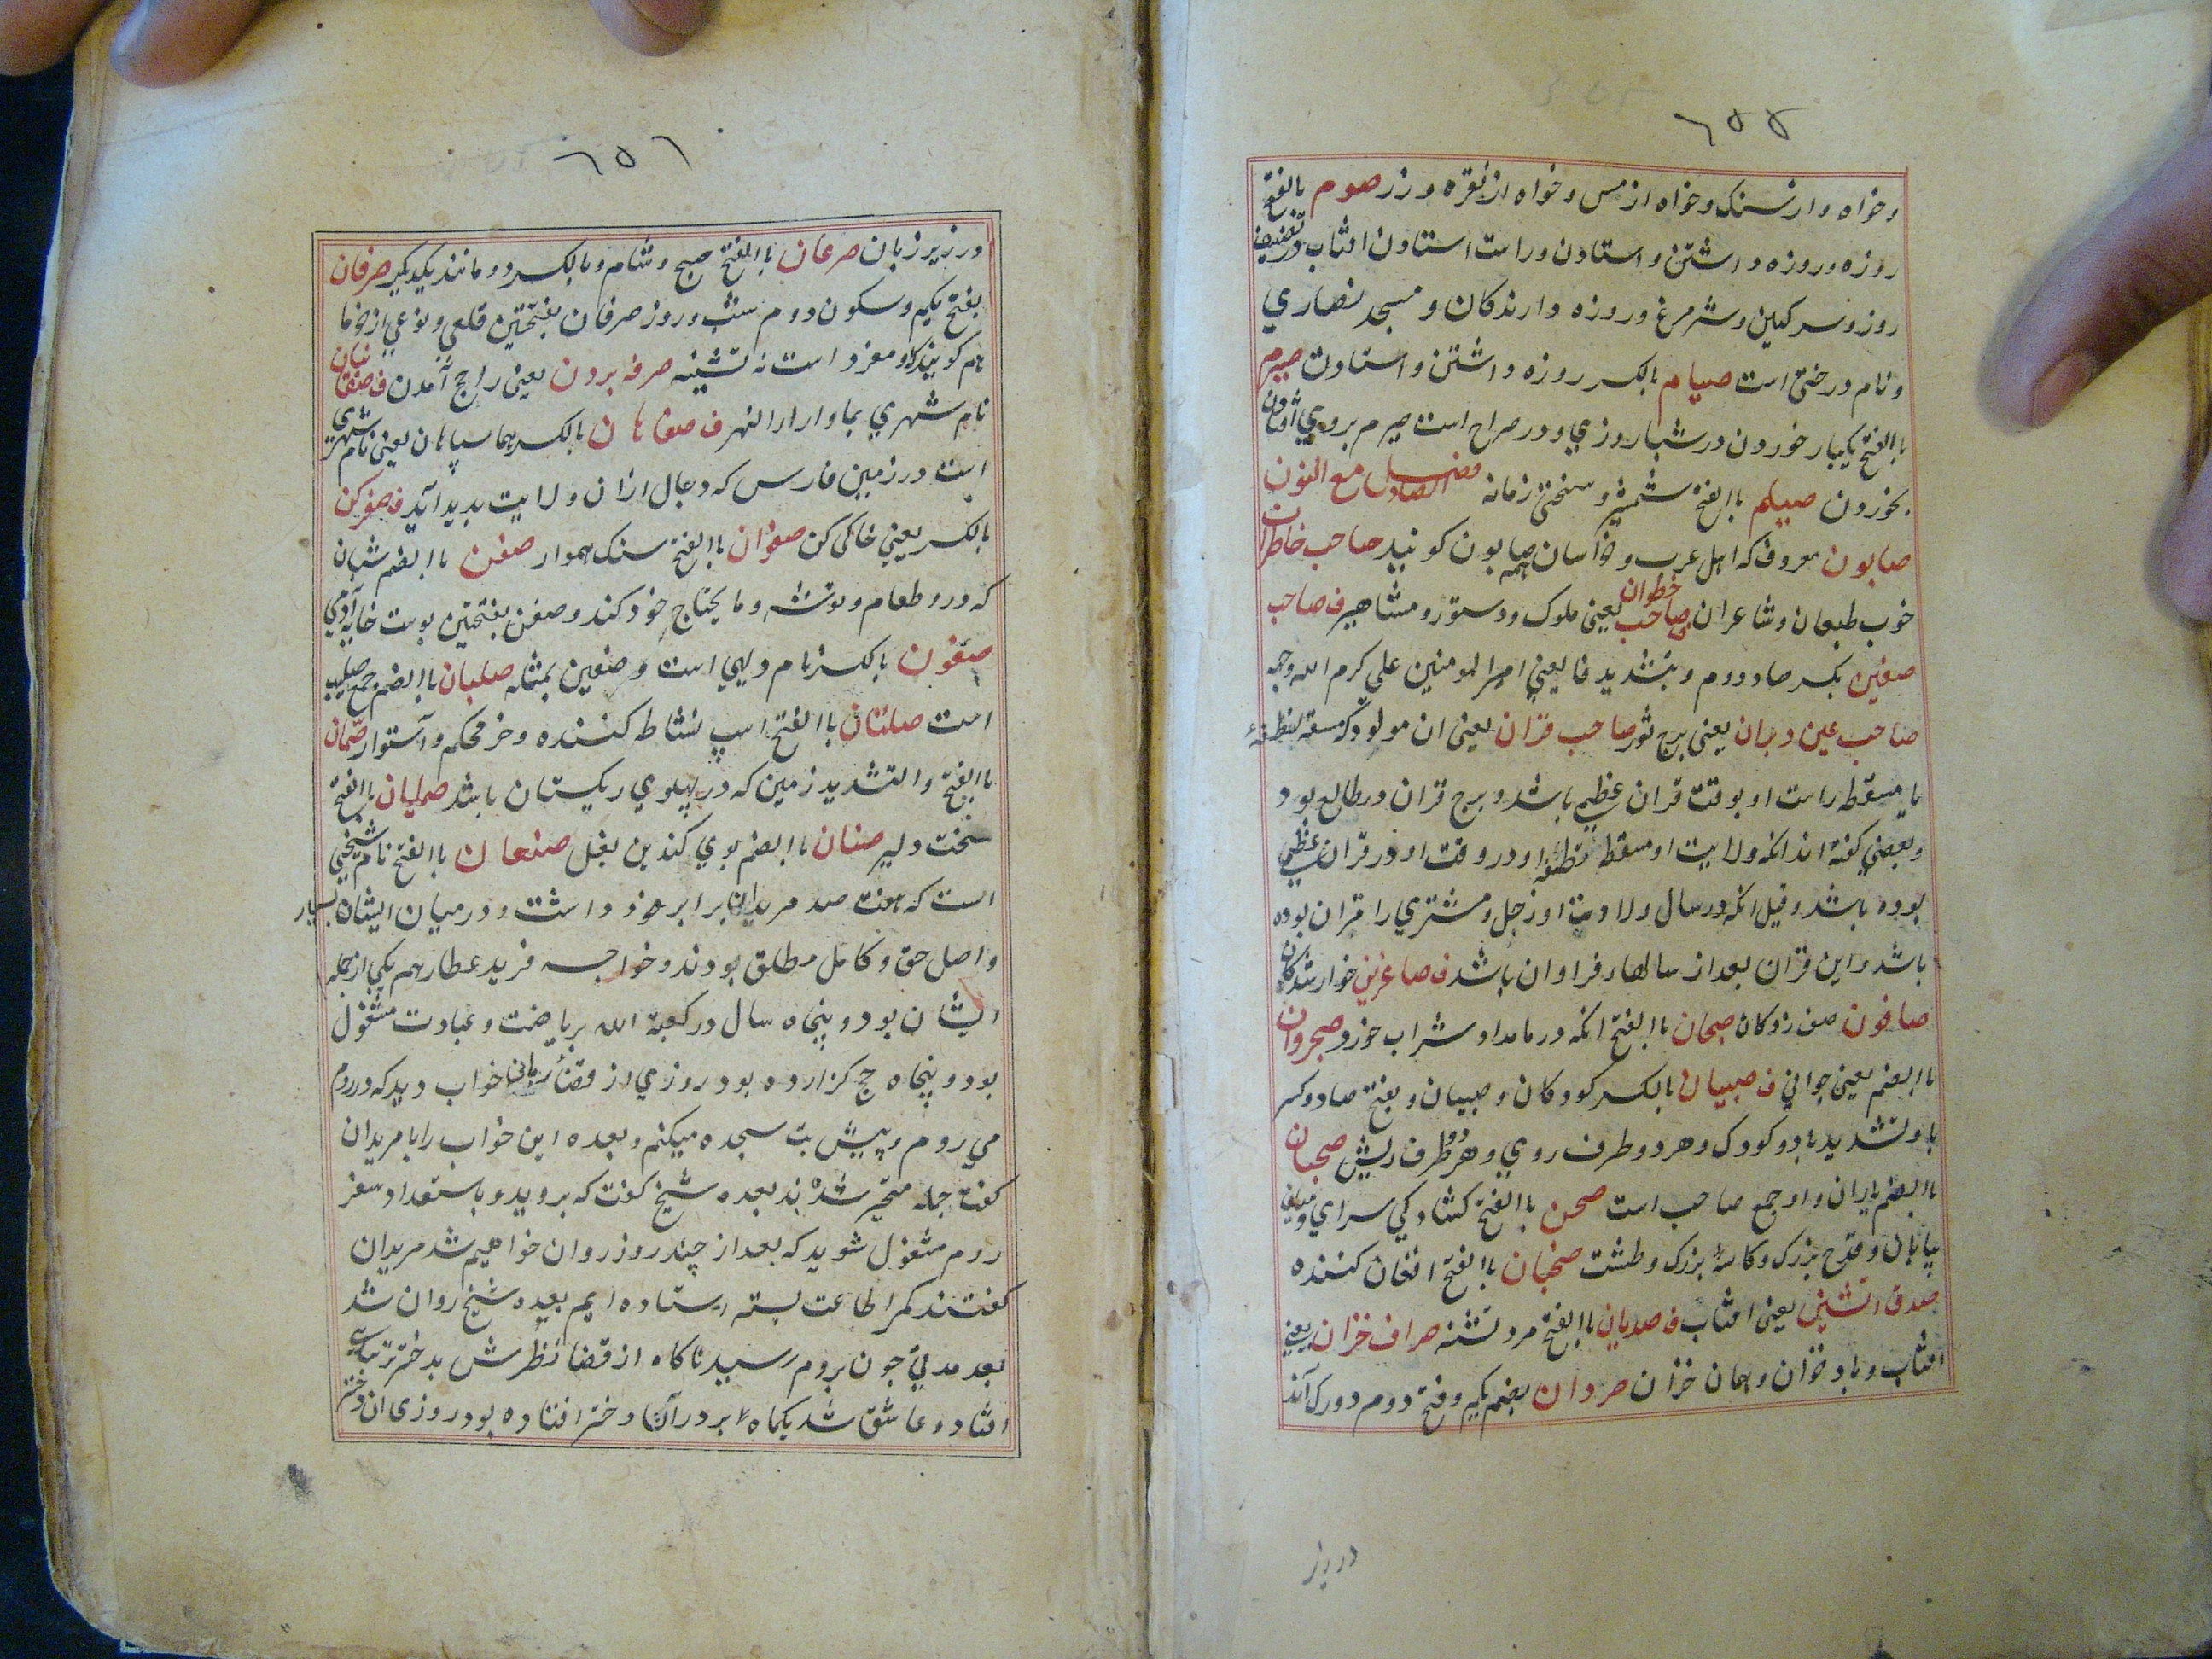 ٦٥٥
وخواه و از سنک و خواه از مس و خواه از نقره و زر صوم بالفتح
روزه و روزه داشتن و استادن و راست استادن افتاب در نصف
روز و سرکین شترمرغ و روزه دارندکان و مسجد نصاری
و نام درختی است صیام بالکسر روزه داشتن و استادن صیرم
باالفتح یکبار خوردن در شبا روزی و در صراح است صیرم بروی
بخوردن صیلم باالفتح شمشیر و سختی زمانه فصل الصاد مع النون
صابون معروف که اهل عرب و خراسان همه صابون کویند صاحب خاطران
خوب طبعان و شاعران صاحب خطوان یعنی ملوک و دستور و مشاهیر ف صاحب
صفین بکسر صاد دوم و بتشدید فا یعنی امیر المومنین علی کرم الله وجهه
صاحب عین دبران یعنی برج ثور صاحب قران یعنی ان مولود که مسقط نطفهٔ
یا مسقط راست او بوقت قران عظیم باشد و برج قران در طالع بود
و بعضی کفته اند انکه ولایت او مسقط نطفه او در وقت او در قران عظمی
بوده باشد و قیل انکه در سال ولادت او زحل و مشتری را قران بوده
باشد و این قران بعد از سالهاء فراوان باشد ف صاغرین خوار شدکان
صافون صف زدکان صبحان باالفتح انکه در بامداد شراب خورد صبحروان
باالضم یعنی جوانی ف صبیان بالکسر کودکان و صبیان و بفتح صاد و کسر
با و تشدید یا دو کودک و هر دو طرف روی و هر دو طرف ریش صحبان
باالضم یاران و او جمع صاحب است صحن باالفتح کشادکی سرای و میان
بیابان و قدح بزرک و کاسهٔ بزرک و طشت صخبان باالفتح افغان کننده
صدف اتشین یعنی افتاب ف صدیان باالفتح مرد تشنه صراف خزان یعنی
افتاب و باد خزان و همان خزان صردان بضم یکم و فتح دوم دو رک اند
در زیر
٦٥٦
در زیر زبان صرعان باالفتح صبح و شام و بالکسر دو مانند یکدیکر صرفان
بفتح یکم و سکون دوم شب و روز صرفان بفتحتین قلعی و نوعی از خرما
نام کویند که او مفرد است نه تشنیه صرفه بردن یعنی راجح آمدن ف صغانیان
نام شهری بماوارا النهر ف صفاهان بالکسر هما سپاهان یعنی نام شهری
است در زمین فارس که دجال ازان ولایت پدید آید ف صفرکن
بالکسر یعنی خالی کن صفوان باالفتح سنک هموار صفن باالضم شبان
که درو طعام و توشه و ما یحتاج خود کند و صفن بفتحتین پوست خایه آدمی
صفون بالکسر نام دیهی است و صفین بمثله صلبان باالضم جمع صلیب
است صلتان باالفتح اسپ نشاط کننده و خر محکم و آستوار صمان
باالفتح والتشدید زمین که در پهلوی ریکستان باشد صملیان باالفتح
سخت دلیر صنان باالضم بوی کنده بن بغل صنعان باالفتح نام شیخی
است که هفت صد مریدان برابر خود داشت و درمیان ایشان بسیار
واصل حق و کامل مطلق بودند و خواجه فرید عطار هم یکی از جمله
ایشان بود و پنجاه سال در کعبة الله بریاضت و عبادت مشغول
بود و پنجاه حج کزارده بود روزی از قضأ ربانی خواب دید که در روم
می روم و پیش بت سجده میکنم و بعده این خواب را با مریدان
کفت جمله متحیر شدند بعده شیخ کفت که بروید و باستعداد سفر
روم مشغول شوید که بعد از چند روز روان خواهیم شد مریدان
کفتند کمر اطاعت بسته ایستاده ایم بعده شیخ روان شد
بعد مدتی چون بروم رسید ناکاه از قضا نظرش بدختر ترسایی
افتاد و عاشق شد یکماه بر در آن دختر افتاده بود روزی ان دختر